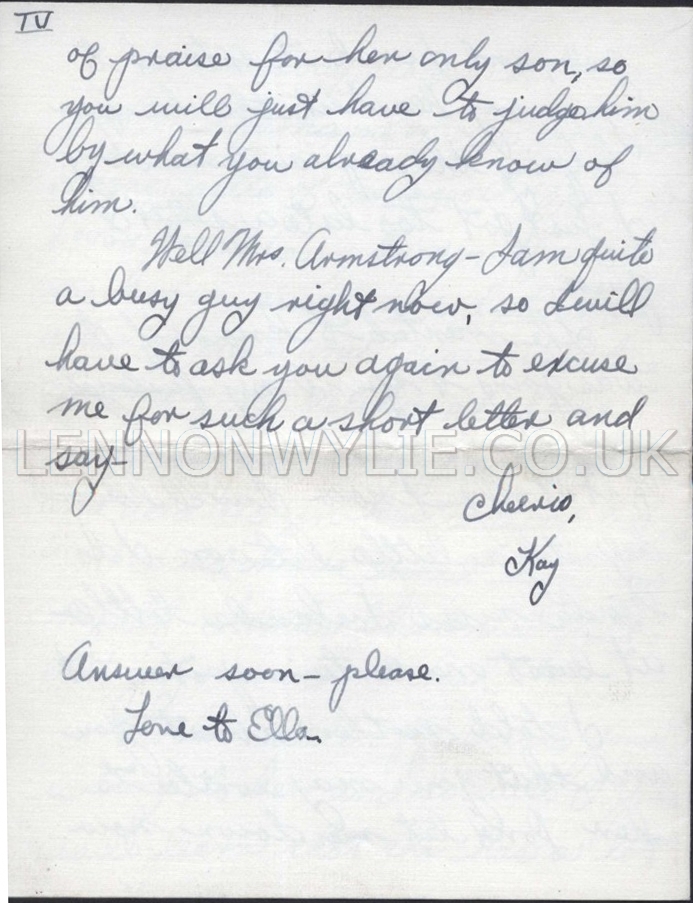 IV
of praise for her only son, so
you will just have to judge him
by what you already know of
him.
Well Mrs. Armstrong - I am quite
a busy guy right now, so I will
have to ask you again to excuse
me for such a short letter and
LENNONWYLIE.CO.UK
say-
Cheerio,
Kay
Answer soon - please.
Love to Ella.